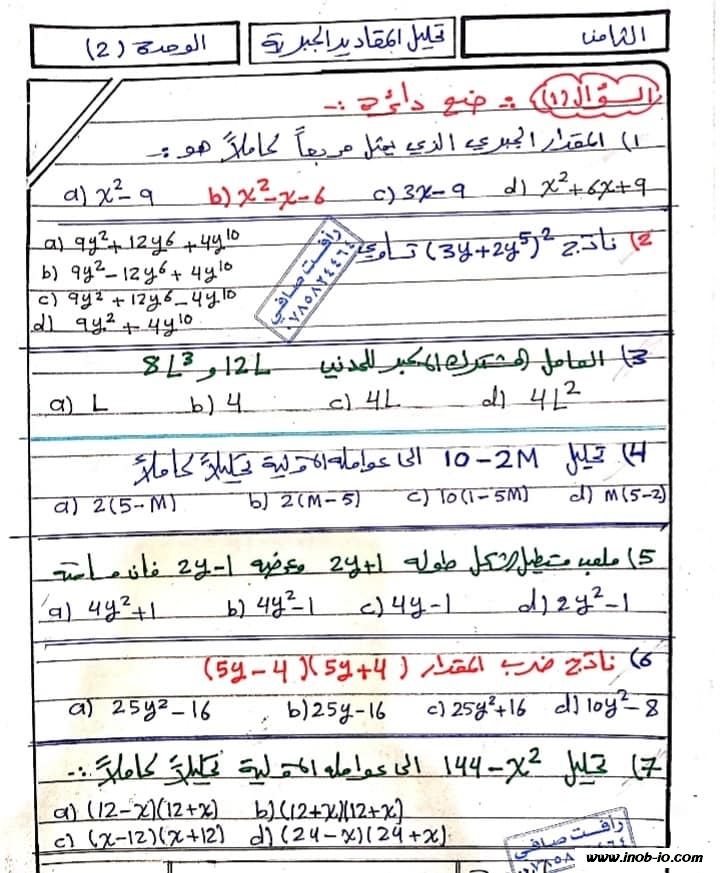 الثامن
تحليل المقادير الجبرية
الوحدة (2)
السؤال (1) :- ضع دائرة :-
1) المقدار الجبري الذي يمثل مربعاً كاملاً هو :-
a) x² - 9 b) x² - x - 6 c) 3x - 9 d) x² + 6x + 9
2) ناتج (3y + 2y⁵)² تساوي
a) 9y² + 12y⁶ + 4y¹⁰
b) 9y² - 12y⁶ + 4y¹⁰
c) 9y² + 12y⁶ - 4y¹⁰
d) 9y² + 4y¹⁰
رأفت صافي
٠٧٨٥٨٢٤٤٦٤
3) العامل المشترك الاكبر للحدين 12L و 8L³
a) L b) 4 c) 4L d) 4L²
4) تحليل 10 - 2M الى عوامله الاولية تحليلاً كاملاً
a) 2(5-M) b) 2(M-5) c) 10(1-5M) d) M(5-2)
5) ملعب مستطيل الشكل طوله 2y+1 وعرضه 2y-1 فان مساحته
a) 4y² + 1 b) 4y² - 1 c) 4y - 1 d) 2y² - 1
6) ناتج ضرب المقدار (5y - 4)(5y + 4)
a) 25y² - 16 b) 25y - 16 c) 25y² + 16 d) 10y² - 8
7) تحليل 144 - x² الى عوامله الاولية تحليلاً كاملاً :-
a) (12-x)(12+x) b) (12+x)(12+x)
c) (x-12)(x+12) d) (24-x)(24+x)
رأفت صافي
www.inob-io.com